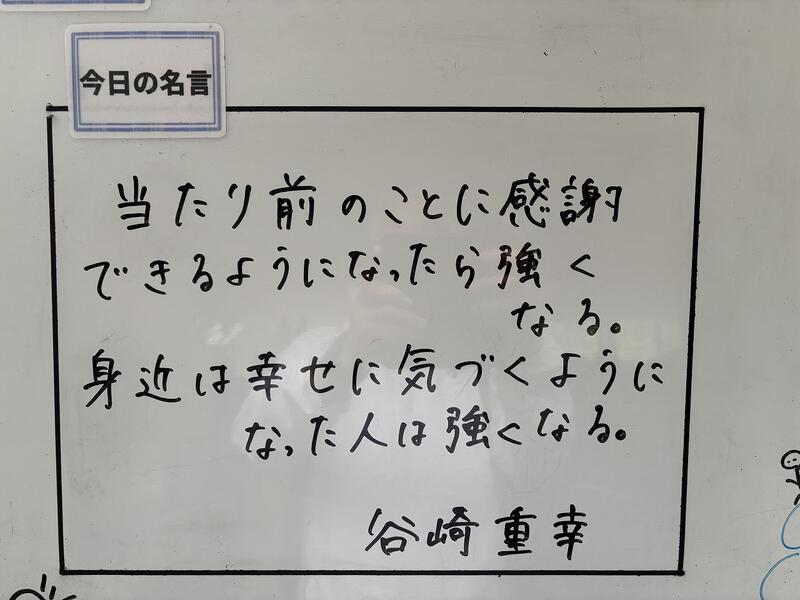 今日の名言
当たり前のことに感謝
できるようになったら強く
なる。
身近は幸せに気づくように
なった人は強くなる。
谷崎重幸